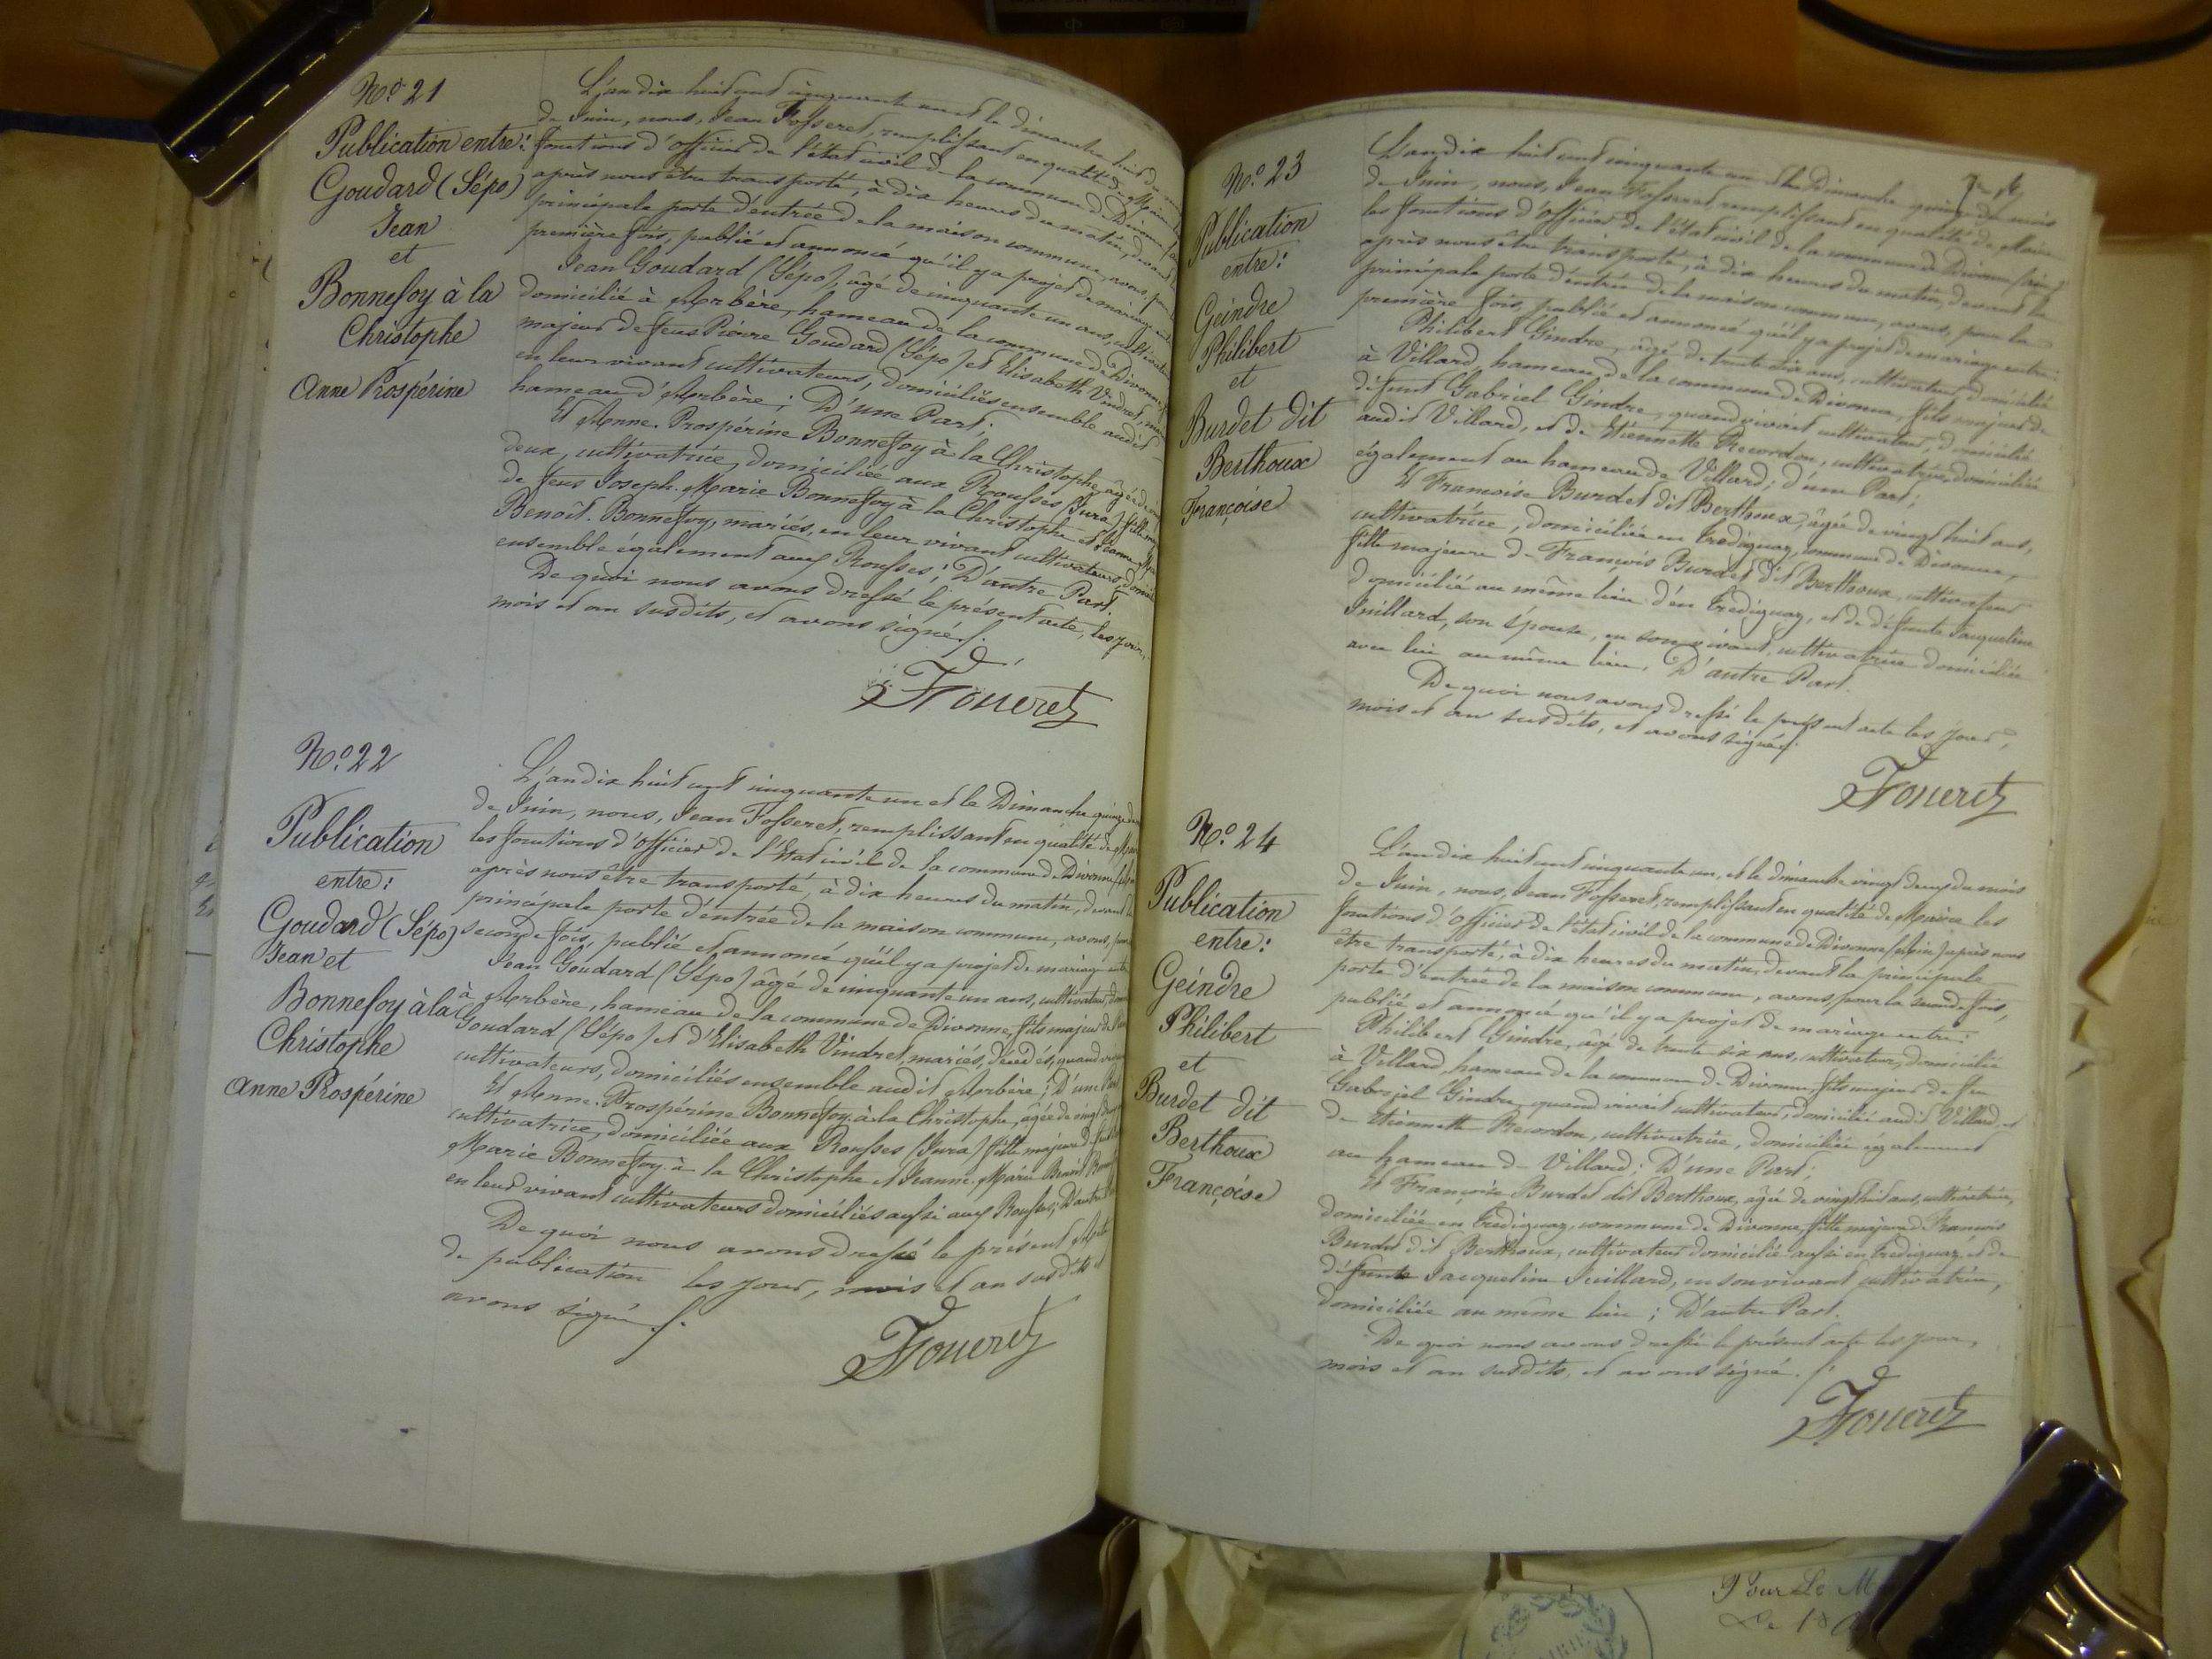 No. 21
Publication entre:
Goudard (Sépo)
Jean
et
Bonnefoy à la
Christophe
Anne Prospérine
L'an dix huit cent cinquante un et le dimanche huit du mois
de Juin, nous, Jean Fosseret, remplissant en qualité de Maire les
fonctions d'officier de l'état civil de la commune de Divonne
après nous être transporté, à dix heures du matin, devant la
principale porte d'entrée de la maison commune, avons, pour
première fois, publié et annoncé qu'il y a projet de mariage entre
Jean Goudard (Sépo), âgé de cinquante un ans, cultivateur
domicilié à Arbère, hameau de la commune de Divonne,
majeur de feus Pierre Goudard (Sépo) et Elisabeth Vindret,
en leur vivant cultivateurs, domiciliés ensemble audit
hameau d'Arbère; D'une Part;
Et Anne-Prospérine Bonnefoy à la Christophe, âgée de
deux, cultivatrice, domiciliée aux Rousses (Jura), fille
de feus Joseph-Marie Bonnefoy à la Christophe et Jeanne
Benoît-Bonnefoy, mariés, en leur vivant cultivateurs,
ensemble également aux Rousses; D'autre Part.
De quoi nous avons dressé le présent acte, les jour,
mois et an susdits, et avons signé./.
Foueret
No. 22
Publication
entre:
Goudard (Sépo)
Jean et
Bonnefoy à la
Christophe
Anne Prospérine
L'an dix huit cent cinquante un et le Dimanche quinze
de Juin, nous, Jean Fosseret, remplissant en qualité de
les fonctions d'officier de l'Etat civil de la commune de Divonne
après nous être transporté, à dix heures du matin, devant
principale porte d'entrée de la maison commune, avons,
seconde fois, publié et annoncé qu'il y a projet de mariage
Jean Goudard (Sépo) âgé de cinquante un ans, cultivateur,
à Arbère, hameau de la commune de Divonne, fils majeur de
Goudard (Sépo) et d'Elisabeth Vindret, mariés, décédés, quand
cultivateurs, domiciliés ensemble audit Arbère; D'une Part
Et Anne-Prospérine Bonnefoy à la Christophe, âgée de vingt
cultivatrice, domiciliée aux Rousses (Jura) fille majeure de
Marie Bonnefoy à la Christophe et Jeanne-Marie Benoit
en leur vivant cultivateurs domiciliés aussi aux Rousses; D'autre
De quoi nous avons dressé le présent Acte
de publication les jour, mois et an susdits et
avons signé ./.
Foueret
No. 23
Publication
entre:
Geindre
Philibert
et
Burdet dit
Berthoux
Françoise
L'an dix huit cent cinquante un et le Dimanche quinze du mois
de Juin, nous, Jean Fosseret remplissant en qualité de Maire
les fonctions d'officier de l'état civil de la commune de Divonne (ain)
après nous être transporté, à dix heures du matin, devant la
principale porte d'entrée de la maison commune, avons, pour la
première fois, publié et annoncé qu'il y a projet de mariage entre:
Philibert Gindre, âgé de trente six ans, cultivateur, domicilié
à Villard, hameau de la commune de Divonne, fils majeur de
défunt Gabriel Gindre, quand vivait cultivateur, domicilié
audit Villard, et de Etiennette Recordon, cultivatrice, domiciliée
également au hameau de Villard; d'une Part;
Et Françoise Burdet dit Berthoux, âgée de vingt huit ans,
cultivatrice, domiciliée en Crédiguaz, commune de Divonne,
fille majeure de François Burdet dit Berthoux, cultivateur
domicilié au même lieu d'en Crédiguaz, et de défunte Jacqueline
Juillard, son épouse, en son vivant, cultivatrice domiciliée
avec lui au même lieu, D'autre Part.
De quoi nous avons dressé le présent acte les jour,
mois et an susdits, et avons signé./.
Foueret
No. 24
Publication
entre:
Geindre
Philibert
et
Burdet dit
Berthoux
Françoise
L'an dix huit cent cinquante un, et le dimanche vingt deux du mois
de Juin, nous, Jean Fosseret, remplissant en qualité de Maire les
fonctions d'Officier de l'état civil de la commune de Divonne (Ain) après nous
être transporté, à dix heures du matin, devant la principale
porte d'entrée de la maison commune, avons, pour la seconde fois,
publié et annoncé qu'il y a projet de mariage entre:
Philibert Gindre, âgé de trente six ans, cultivateur, domicilié
à Villard, hameau de la commune de Divonne, fils majeur de feu
Gabriel Gindre, quand vivait cultivateur, domicilié audit Villard, et
de Etiennette Recordon, cultivatrice, domiciliée également
au hameau de Villard; D'une Part;
Et Françoise Burdet dit Berthoux, âgée de vingt huit ans, cultivatrice,
domiciliée en Crédiguaz, commune de Divonne, fille majeure de François
Burdet dit Berthoux, cultivateur domicilié aussi en Crédiguaz, et de
défunte Jacqueline Juillard, en son vivant cultivatrice,
domiciliée au même lieu; D'autre Part.
De quoi nous avons dressé le présent acte les jour,
mois et an susdits, et avons signé./.
Foueret
Pour Le M
Le 18